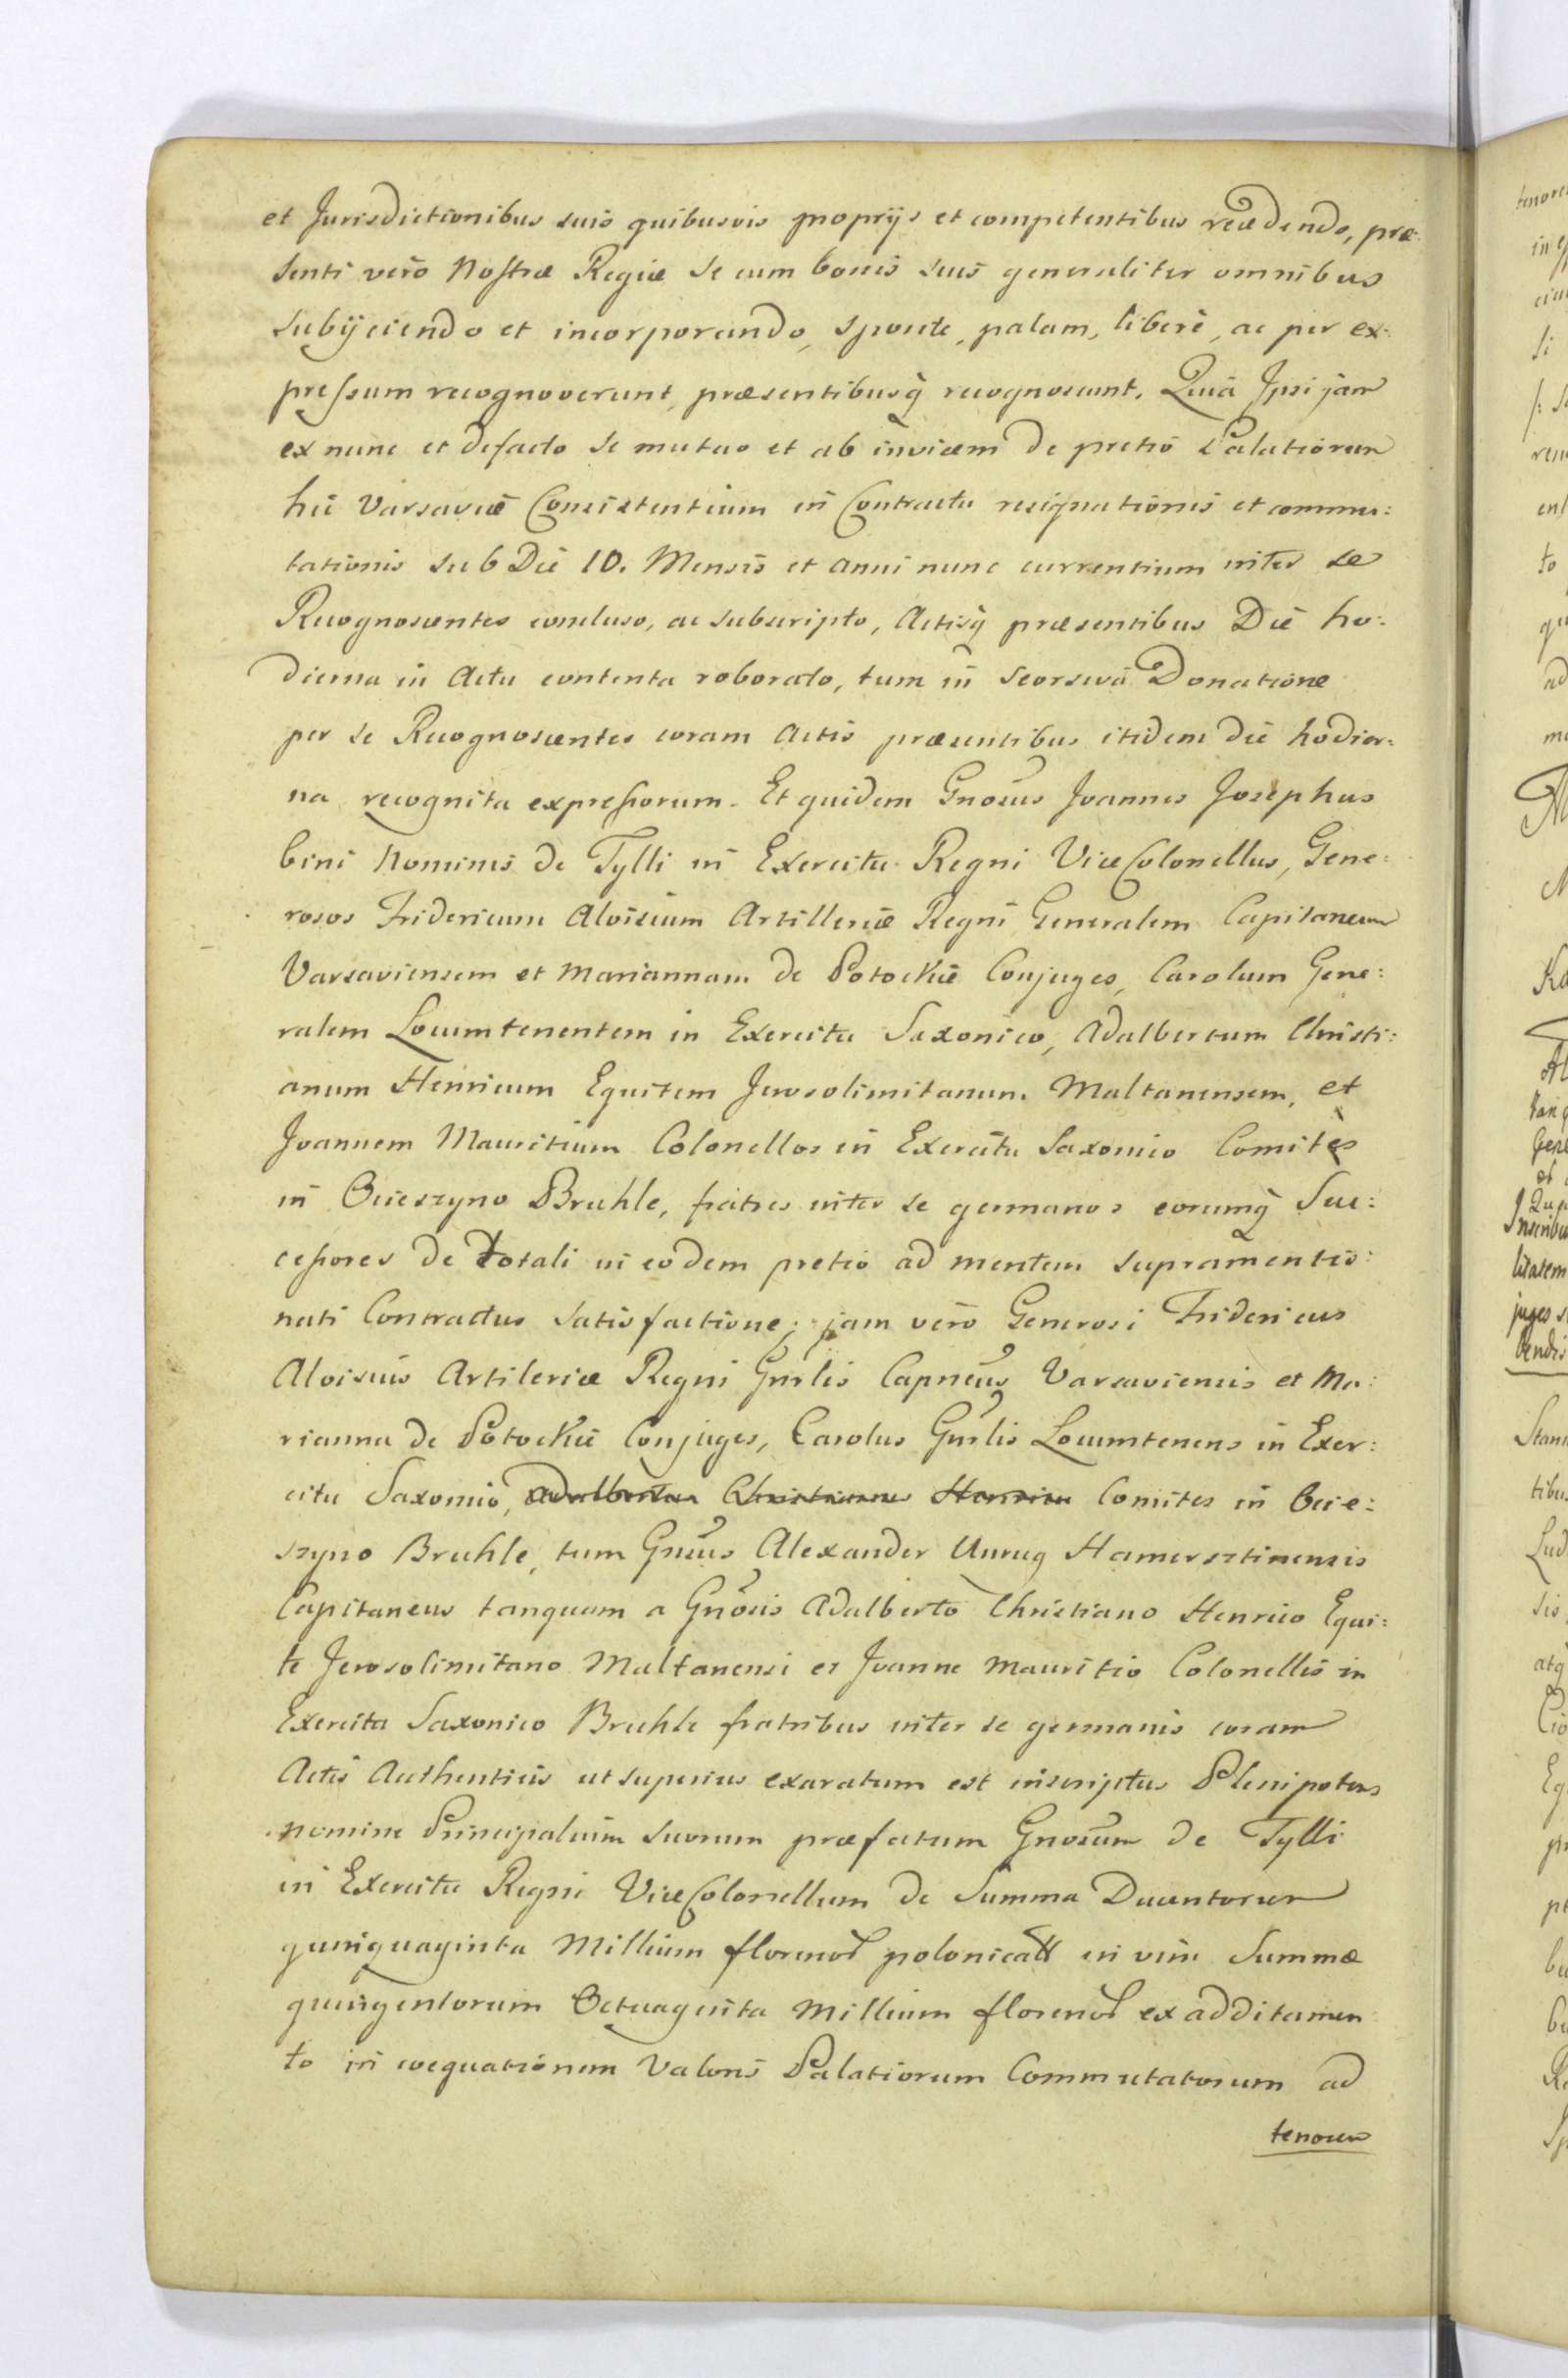 et Jurisdictionibus suis quibusvis proprijs et competentibus recedendo, præ:
senti vero Nostræ Regiæ se cum bonis suis generaliter omnibus
subijciendo et incorporando, sponte, palam, liberè, ac per ex:
pressum recognoverunt, præsentibusq̃ recognoscunt. Quia Ipsi jam
ex nunc et defacto se mutuo et ab invicem de pretio Palatiorum
hic Varsaviæ Consistentium in Contractu resignationis et commu:
tationis sub Die 10. Mensis et anni nunc currentium inter se
Recognoscentes concluso, ac subscripto, Actisq̃ præsentibus Die ho:
dierna in Actu contenta roborato, tum in seorsiva Donatione
per se Recognoscentes coram Actis præsentibus itidem die hodier:
na recognita expressorum. Et quidem Gnosus Joannes Josephus
bini Nominis de Tylli in Exercitu Regni ViceColonellus, Gene:
rosos Fridericum Aloisium Artilleriæ Regni Generalem Capitaneum
Varsaviensem et Mariannam de Potockie Conjuges, Carolum Gene:
ralem Locumtenentem in Exercitu Saxonico, Adalbertum Christi:
anum Henricum Equitem Jerosolimitanum Maltanensem, et
Joannem Mauritium Colonellos in Exercitu Saxonico Comites
in Ocieszyno Bruhle, fratres inter se germanos eorumq̃ Suc:
cessores de totali in eodem pretio ad mentem supramentio:
nati Contractus satisfactione; jam vero Generosi Fridericus
Aloisius Artileriæ Regni Gnrlis Capneus Varsaviensis et Ma:
rianna de Potockie Conjuges, Carolus Gnrlis Locumtenens in Exer:
citu Saxonico, Adalbertus Christianus Henricus Comites in Ocie:
szyno Bruhle, tum Gnsus Alexander Unrug Hamersztinensis
Capitaneus tanquam a Gnosis Adalberto Christiano Henrico Equi:
te Jerosolimitano Maltanensi et Joanne Mauritio Colonellis in
Exercitu Saxonico Bruhle fratribus inter se germanis coram
Actis Authenticis ut superius exaratum est inscriptus Plenipotens
nomine Principalium suorum præfatum Gnosum de Tylli
in Exercitu Regni ViceColonellum de Summa Ducentorum
quinquaginta Millium floreno polonical in vim Summæ
quingentorum Octuaginta Millium floreno ex additamen
to in coequationem Valoris Palatiorum Commutatorum ad
tenorem